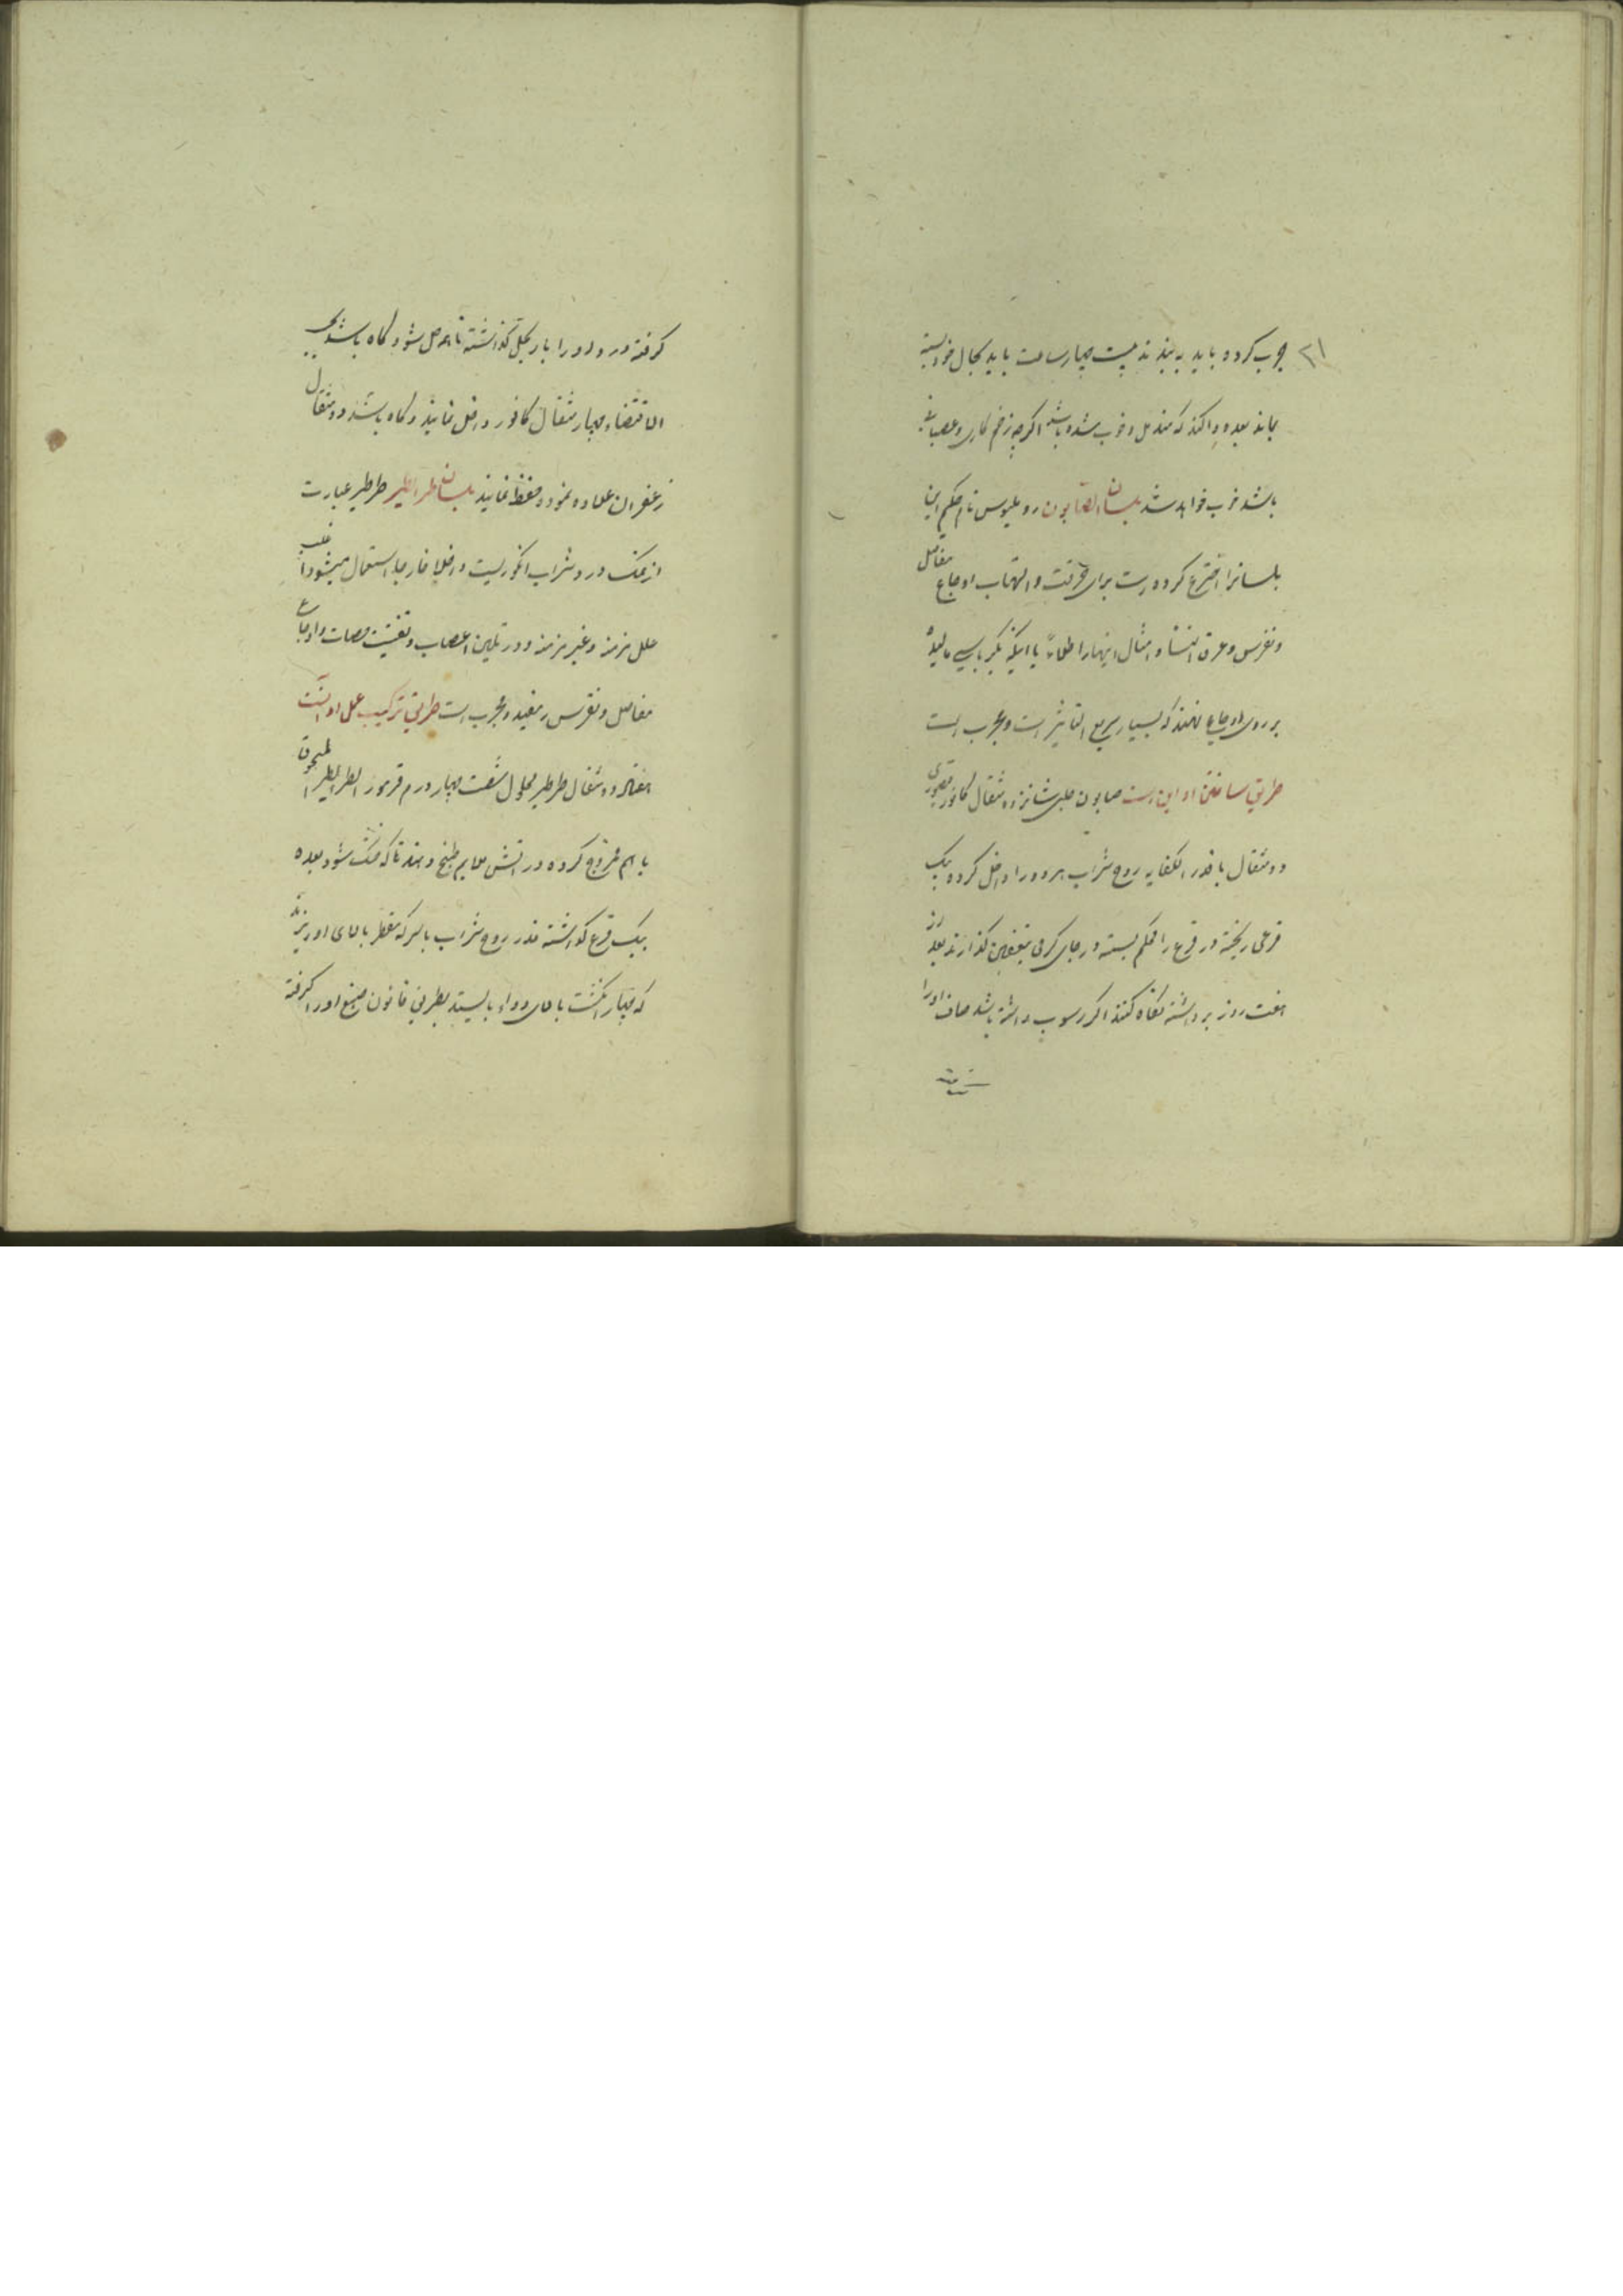 ۲۱
چرب کرده باید به بندند بیست چهار ساعت باید بحال خود بسته
بماند بعده وا کنند که مندمل و خوب شده باشد اگرچه زخم کاری و عصبانی
باشد خوب خواهد شد بلسان الصابون رو علیوس نام حکیم این
بلسانرا اختراع کرده است برای حرقت و التهاب اوجاع مفاصل
و نقرس و عرق النسا و امثال اینهارا طلاءً یا اینکه بکرباسی مالیده
بر روی اوجاع نهند که بسیار سریع التاثیر است و مجرب است
طریق ساختن او این است صابون حلبی شانزده مثقال کافور قیصوری
دو مثقال با قدر الکفایه روح شراب هر دو را داخل کرده بیک
قرعی ریخته در قرع را محکم بسته در جای گرمی بتعفین گذارند بعد از
هفت روز برداشته نگاه کنند اگر رسوب داشته باشد صاف او را
گرفته درد او را باز بحل گذاشته تا هم حل شود و گاه باشد بحسب
الاقتضاء چهار مثقال کافور داخل نمایند و گاه باشد دو مثقال
زعفران علاوه نموده حفظ نمایند بلسان طراطیر طرطیر عبارت
از نمک درد شراب انگوریست داخلا خارجا استعمال میشود اغلب
علل مزمنه و غیر مزمنه و در تلیین اعصاب و تفتیت حصات و اوجاع
مفاصل و نقرس مفید و مجرب است طریق ترکیب عمل او آنست
هفتاد و دو مثقال طرطیر محلول شصت چهار درم قرمور الطراطیر المحوق
با هم ممزوج کرده در آتش ملایم طبخ دهند تا که خشک شود بعده
بیک قرع گذاشته قدر روح شراب با سرکه مقطر بالای او ریزند
که چهار انگشت بالای دواء بایستد بطریق قانون صبغ او را گرفته